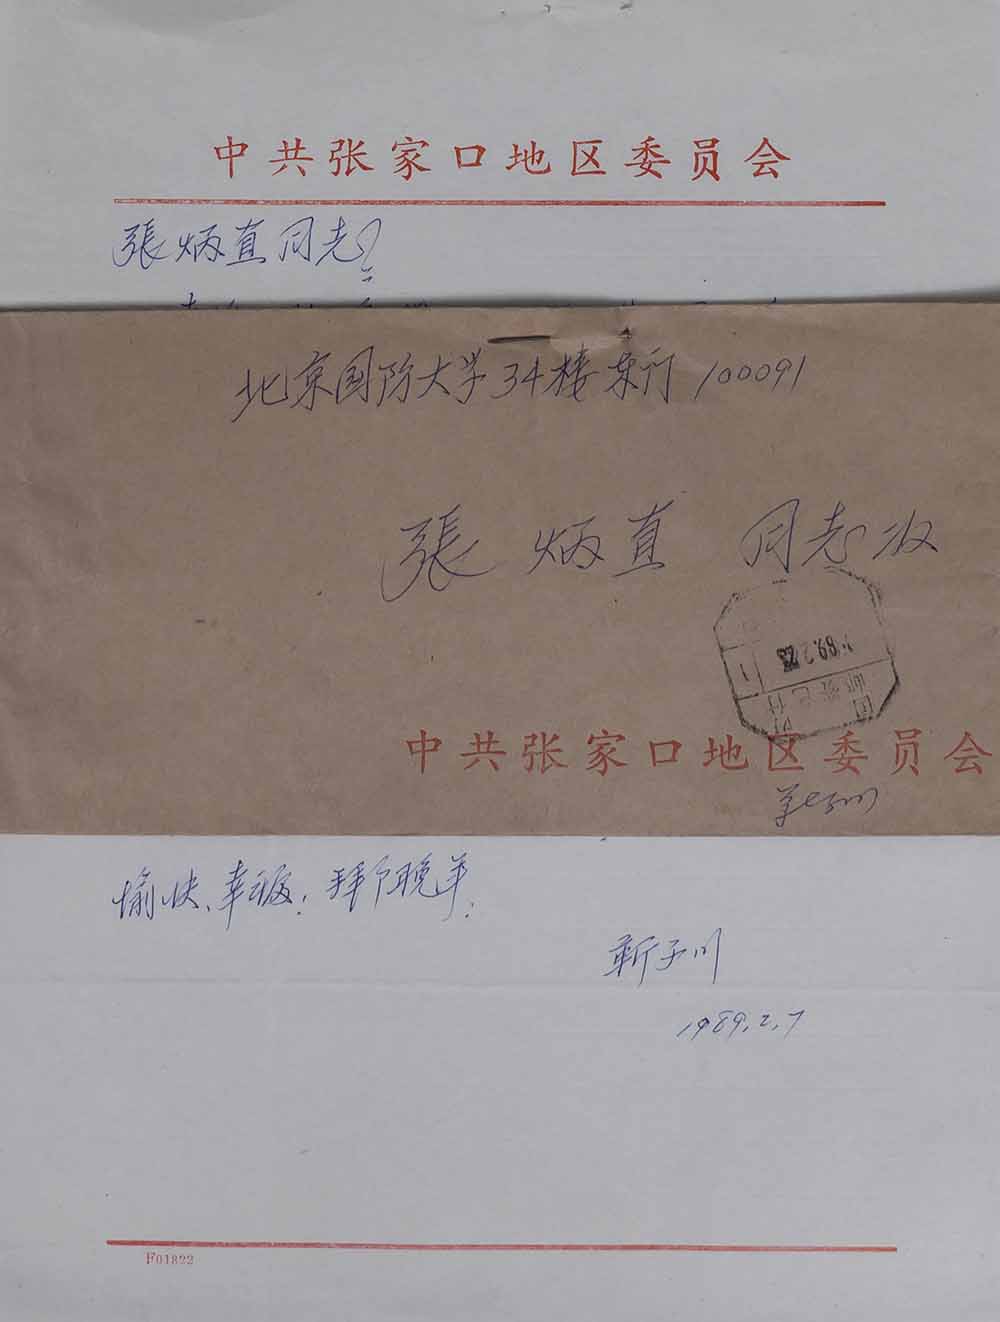 中共张家口地区委员会
張炳直同志：
北京国防大学34楼东门100091
張炳直 同志收
89.2.
1
国内
邮资已付
中共张家口地区委员会
靳子川
愉快、幸福！我的晚年！
靳子川
1989.2.7
F01822